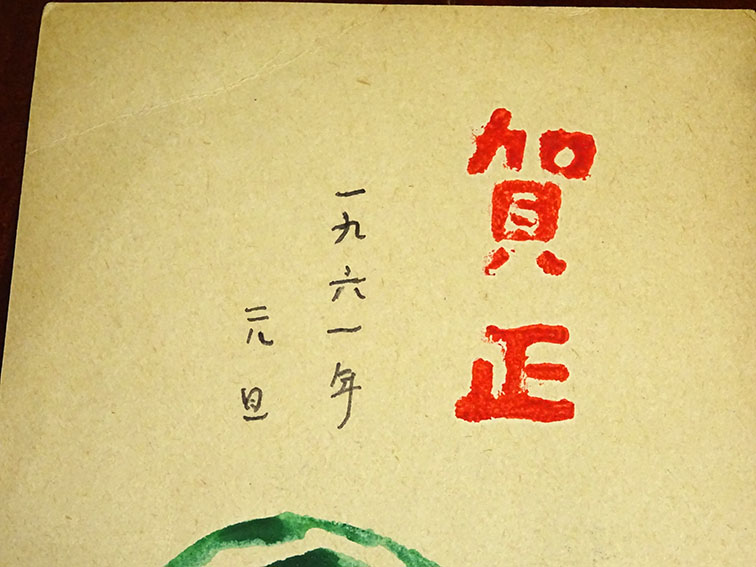 賀正
一九六一年
元旦